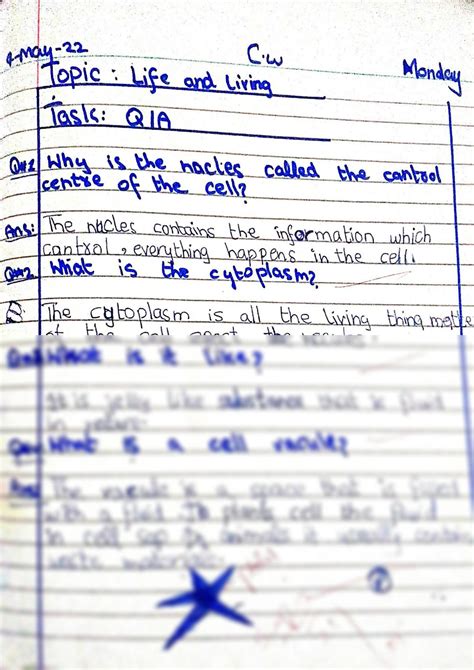 4-may-22 C.w Monday
Topic : Life and Living
Task: Q1A
Q#1 Why is the nacles called the cantrol
centre of the cell?
Ans: The nucles contains the information which
cantrol , everything happens in the cell.
Q#2 What is the cytoplasm?
The cytoplasm is all the living thing matte
of the cell apart the
What is it like?
It is jelly like substance that is fluid
in
What is a cell
Ans: The is a space that is filled
with a fluid. In plants cell the fluid
in cell sap In animals it usually contain
waste materials.